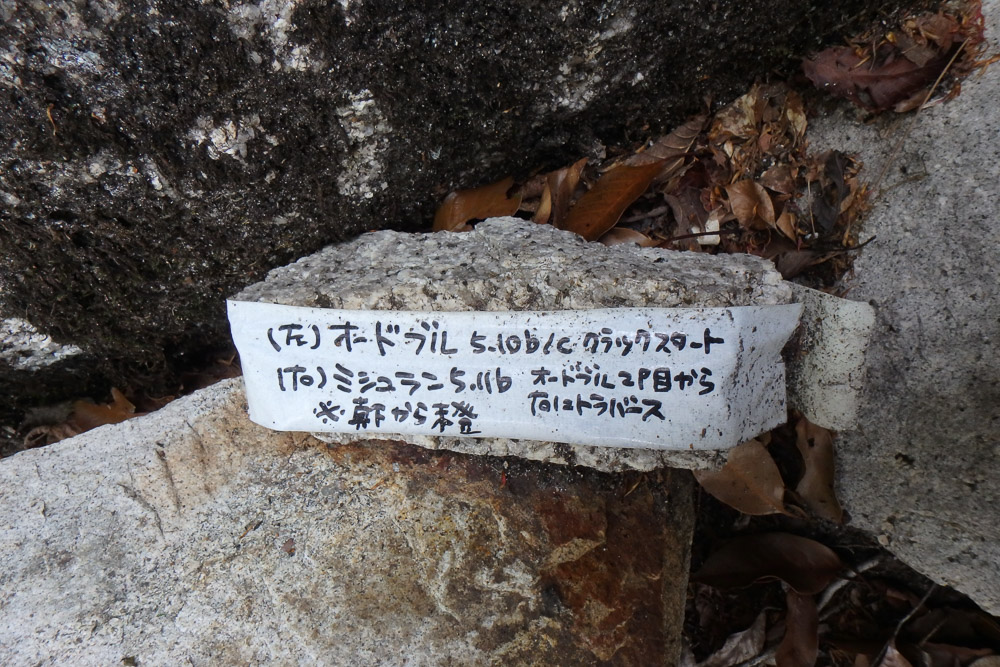 (左) オードブル 5.10b/c クラックスタート
(右) ミシュラン 5.11b オードブル2P目から
右にトラバース
※真下から未登